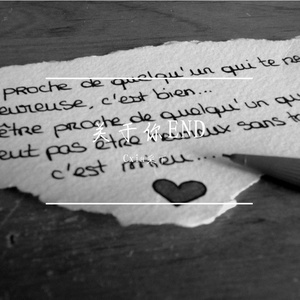 proche de quelqu'un qui te re
eureuse, c'est bien...
être proche de quelqu'un qu
eut pas être heureux sans to
关于你END
c'est mieu....